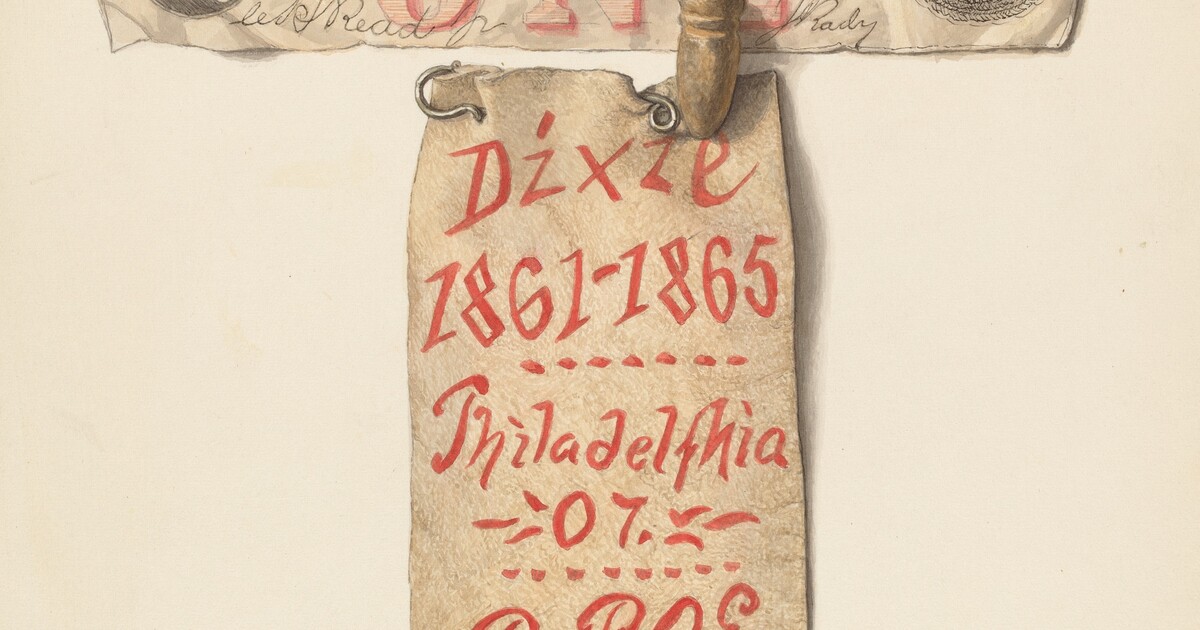 Read Jr ONE Rady
Dixie
1861-1865
Philadelphia
07.